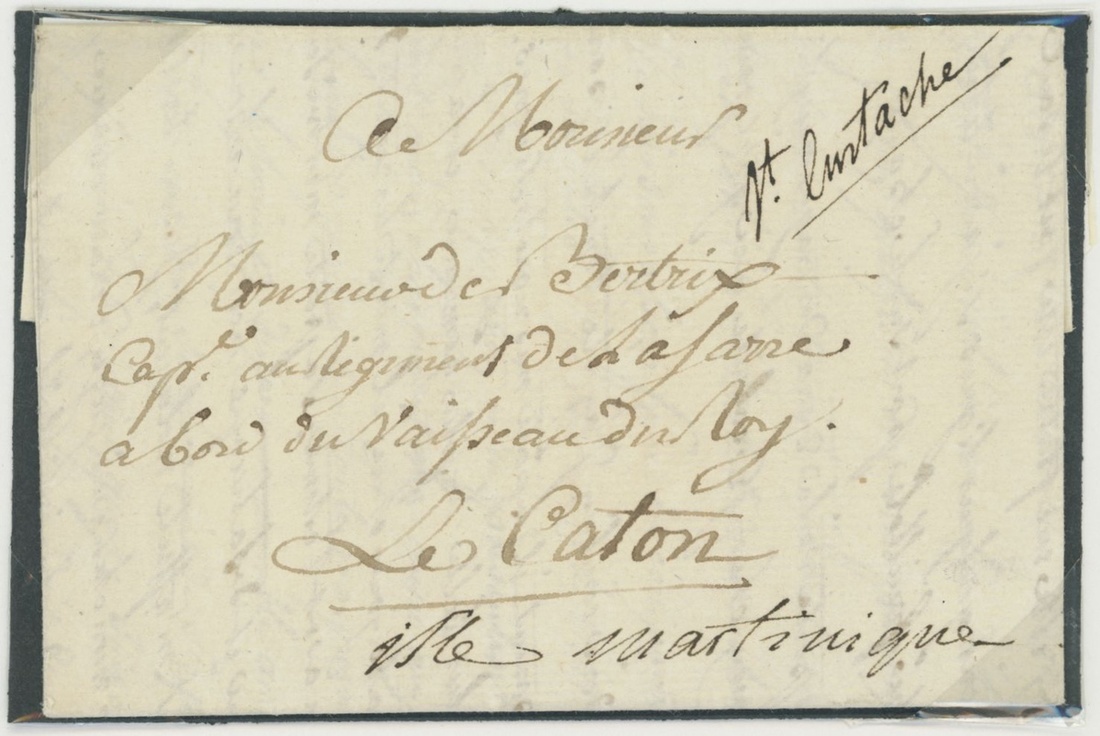 A Monsieur
St. Eustache
Monsieur de Bertrix
Cape. au Regiment de la Sarre
a bord du Vaisseau du Roy.
Le Caton
isle martinique